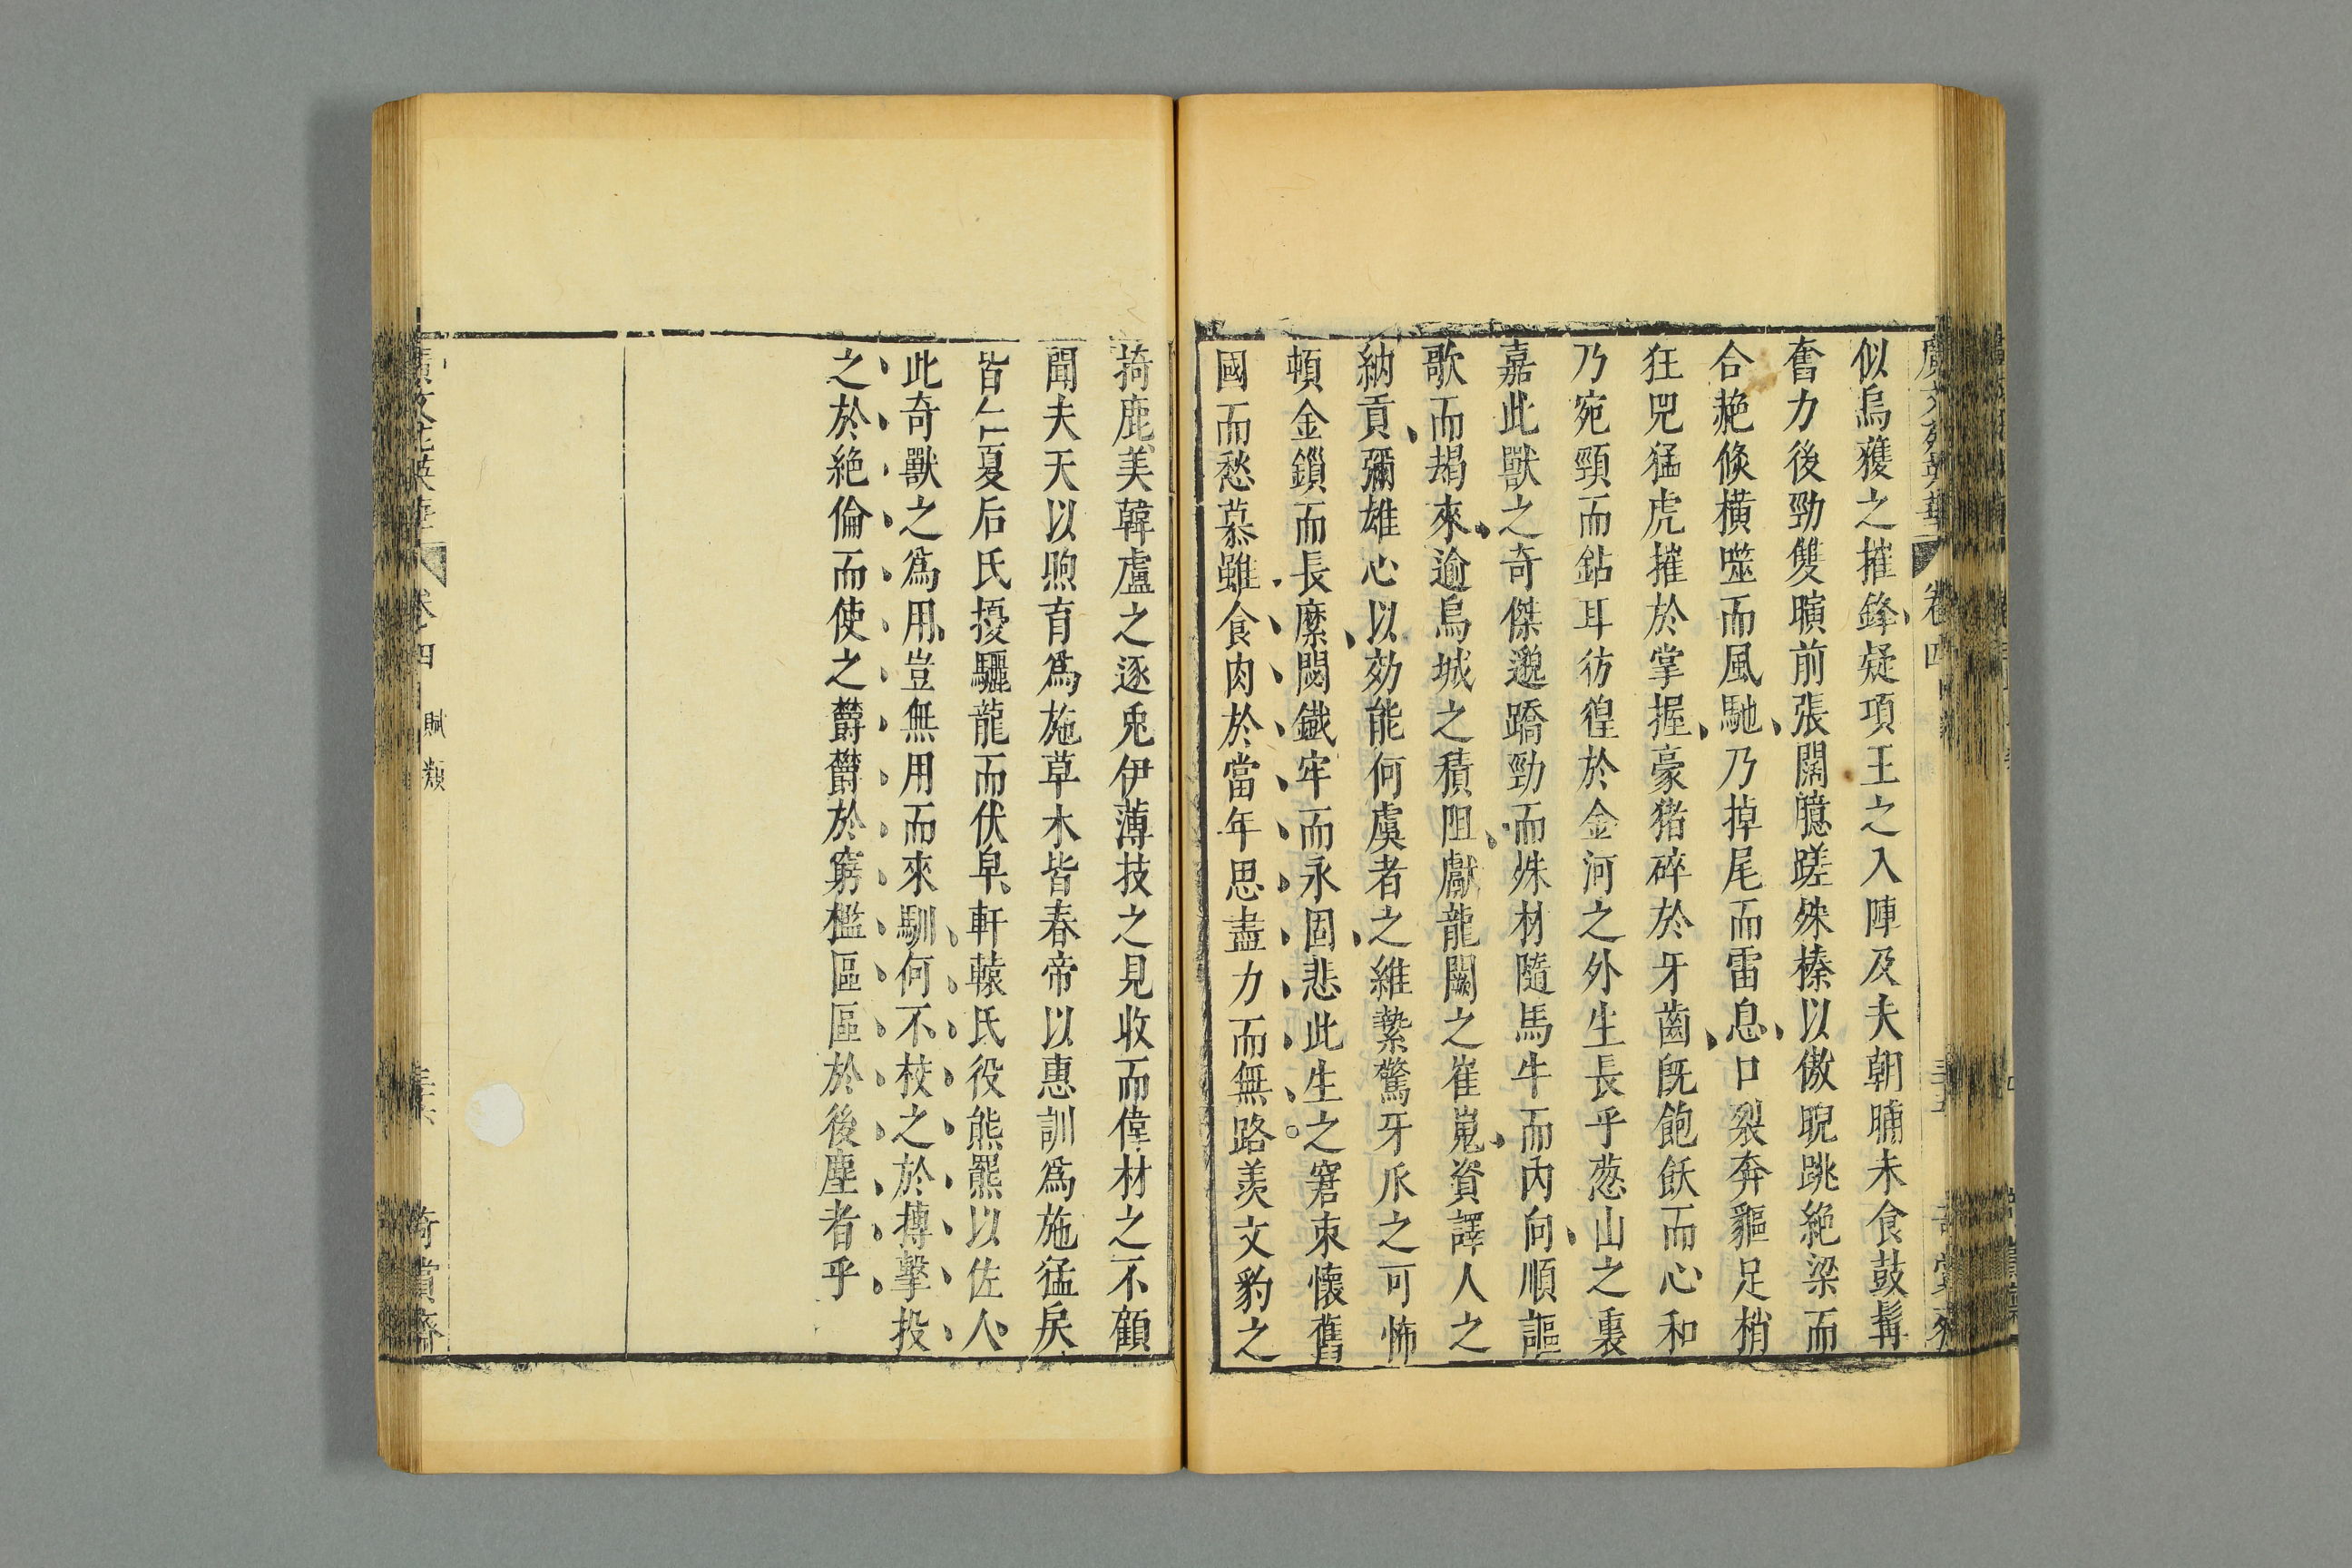 似烏獲之摧鋒疑項王之入陣及夫朝晡未食鼓髯
奮力後勁雙曠前張闊臆蹉殊榛以傲睨跳絶梁而
合趒倐橫噬而風馳乃掉尾而雷息口裂奔貙足梢
狂兕猛虎摧於掌握豪猪碎於牙齒旣飽飫而心和
乃宛頸而鉆耳彷徨於金河之外生長乎葱山之裏
嘉此獸之奇傑邈蹻勁而姝材隨馬牛而內向順謳
歌而朅來逾烏城之積阻獻龍闕之崔嵬資譯人之
納貢彌雄心以効能何虞者之維縶驚牙爪之可怖
頓金鎖而長縻閟鐵牢而永固悲此生之窘束懷舊
國而愁慕雖食肉於當年思盡力而無路羨文豹之
廣文苑英華 卷四
掎鹿美韓盧之逐兎伊薄技之見收而偉材之不顧
聞夫天以煦育爲施草木皆春帝以惠訓爲施猛戾
皆仁夏后氏擾驪龍而伏阜軒轅氏役熊羆以佐人
此奇獸之爲用豈無用而來馴何不校之於搏擊投
之於絶倫而使之欝欝於窮檻區區於後塵者乎
廣文苑英華 卷四 賦類